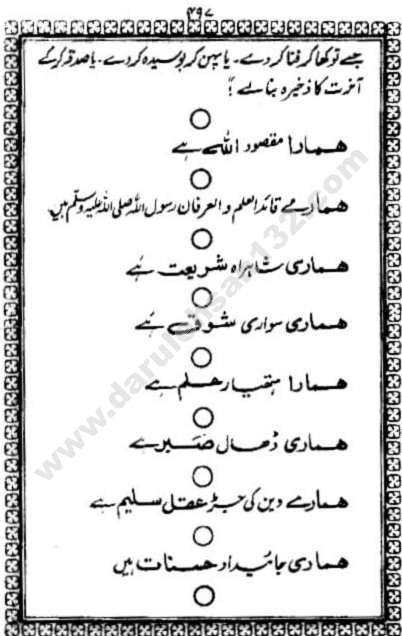 ۴۹۷
جسے تو کھا کر فنا کر دے۔ یا پہن کر بوسیدہ کر دے۔ یا صدقہ کر کے
آخرت کا ذخیرہ بنا لے؟"
ھمارا مقصود اللہ ہے
ھمارے قائد العلم و العرفان رسول اللہ صلی اللہ علیہ وسلم ہیں
ھماری شاہراہ شریعت ہے
ھماری سواری شوق ہے
ھمارا ہتھیار حلم ہے
ھماری ڈھال صبر ہے
ھمارے دین کی جڑ عقل سلیم ہے
ھماری جائیداد حسنات ہیں
www.darulehsas132.com